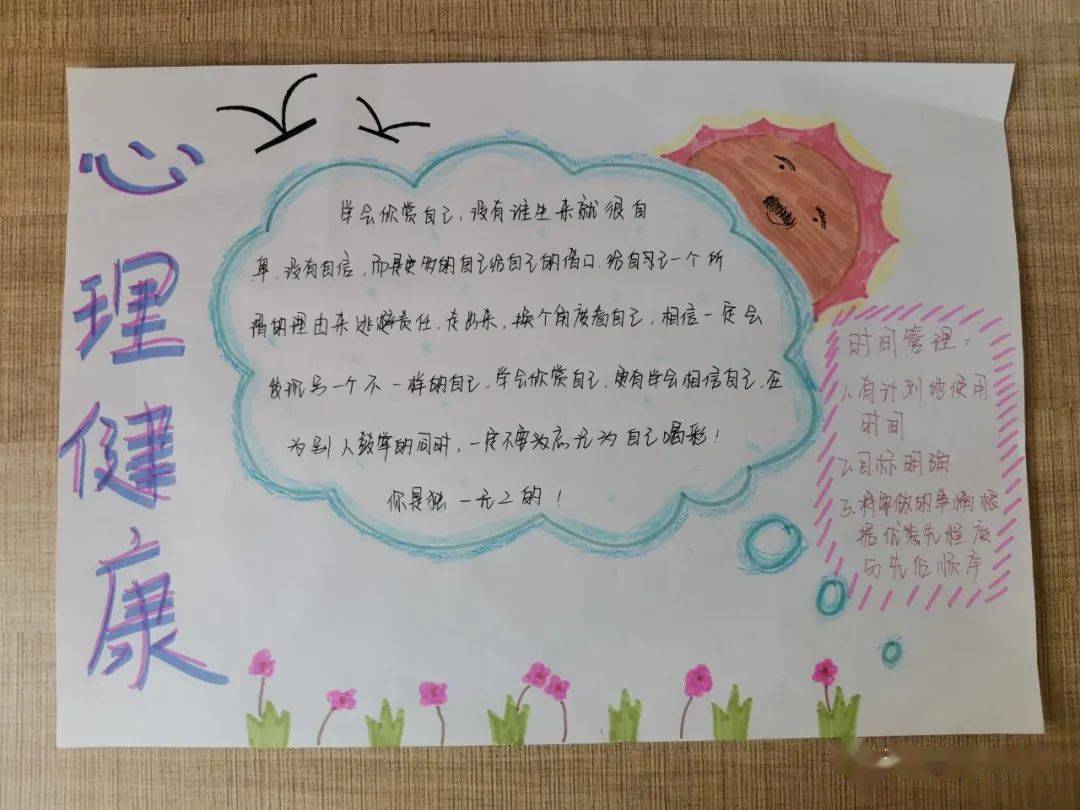 心理健康
学会欣赏自己,没有谁生来就很自
卑,没有自信,而是更多的自己给自己的借口.给自己一个所
谓的理由来逃避责任,走出来,换个角度看自己,相信一定会
发现另一个不一样的自己,学会欣赏自己,更有学会相信自己,在
为别人鼓掌的同时,一定不要忘记为自己喝彩!
你是独一无二的!
时间管理:
1.有计划地使用
时间
2.目标明确
3.将要做的事情根
据优先程度
与先后顺序